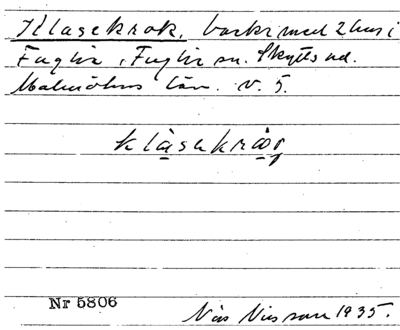 Klasekrok, backe med 2 hus i
Fuglie, Fuglie sn. Skytts hd.
Malmöhus län. v. 5.
klasekråg
Nr 5806
Nils Nilsson 1935.